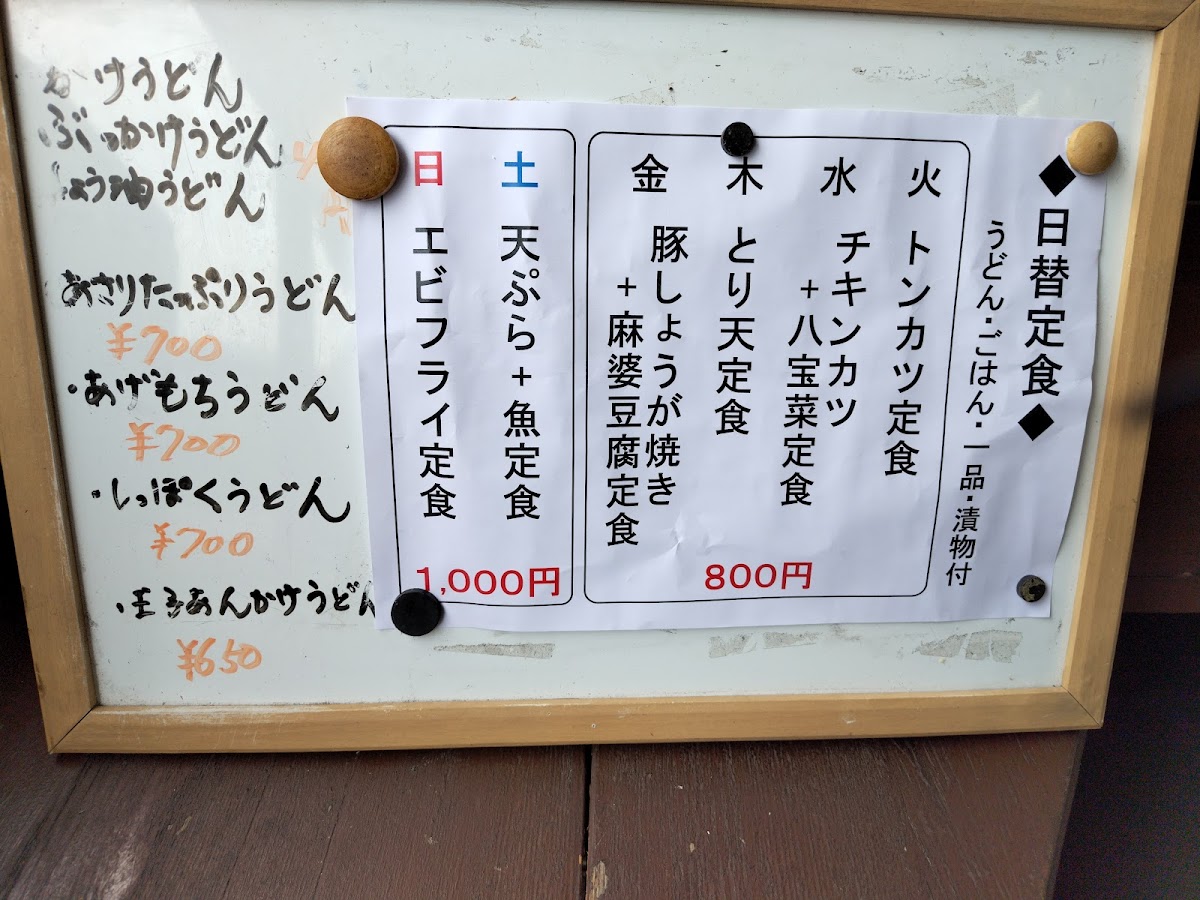 かけうどん
ぶっかけうどん
しょう油うどん
あさりたっぷりうどん
¥700
・あげもちうどん
¥700
・しっぽくうどん
¥700
・玉子あんかけうどん
¥650
◆日替定食◆
うどん・ごはん・一品・漬物付
火 トンカツ定食
水 チキンカツ
+八宝菜定食
木 とり天定食
金 豚しょうが焼き
+麻婆豆腐定食
800円
土 天ぷら+魚定食
日 エビフライ定食
1,000円